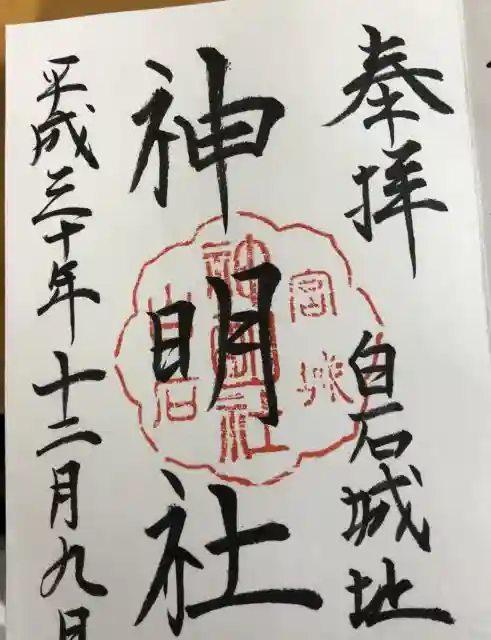 奉拝
白石城址
神明社
宮城
神明社
白石
平成三十年十二月九日